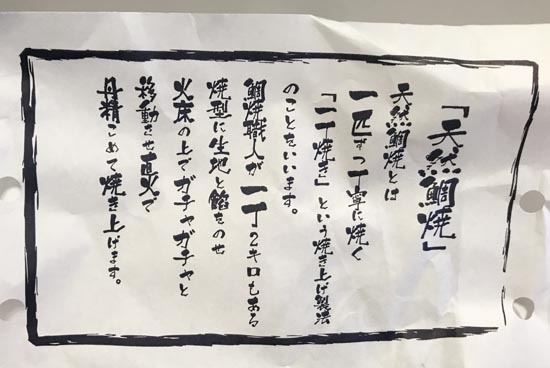 「天然鯛焼」
天然鯛焼とは
一匹ずつ丁寧に焼く
「一丁焼き」という焼き上げ製法
のことをいいます。
鯛焼職人が一丁2キロもある
焼型に生地と餡をのせ
火床の上でガチャガチャと
移動させ直火で
丹精こめて焼き上げます。